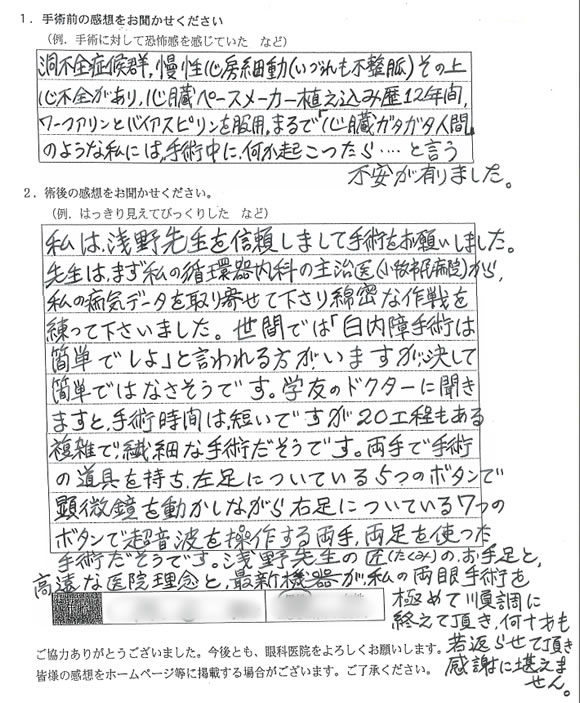 1．手術前の感想をお聞かせください
（例．手術に対して恐怖感を感じていた　など）
洞不全症候群，慢性心房細動(いづれも不整脈)その上
心不全があり，心臓ペースメーカー植え込み歴12年間，
ワーファリンとバイアスピリンを服用，まるで「心臓ガタガタ人間」
のような私には，手術中に，何か起こったら‥‥と言う
不安が有りました。
2．術後の感想をお聞かせください。
（例．はっきり見えてびっくりした　など）
私は，浅野先生を信頼しまして手術をお願いしました。
先生は，まず私の循環器内科の主治医(小牧市民病院)から，
私の病気データを取り寄せて下さり綿密な作戦を
練って下さいました。世間では「白内障手術は
簡単でしよ」と言われる方が，いますが，決して
簡単ではなさそうです。学友のドクターに聞き
ますと，手術時間は，短いですが20工程もある
複雑で，繊細な手術だそうです。両手で手術
の道具を持ち，左足についている5つのボタンで
顕微鏡を動かしながら右足についている7つの
ボタンで超音波を操作する両手，両足を使った
手術だそうです。浅野先生の匠(たくみ)の，お手足と，
高遠な医院理念と，最新機器が，私の両眼手術を
極めて順調に
終えて頂き，何十才も
若返らせて頂き
感謝に堪えま
せん。
ご協力ありがとうございました。今後とも、眼科医院をよろしくお願いします。
皆様の感想をホームページ等に掲載する場合がございます。ご了承ください。